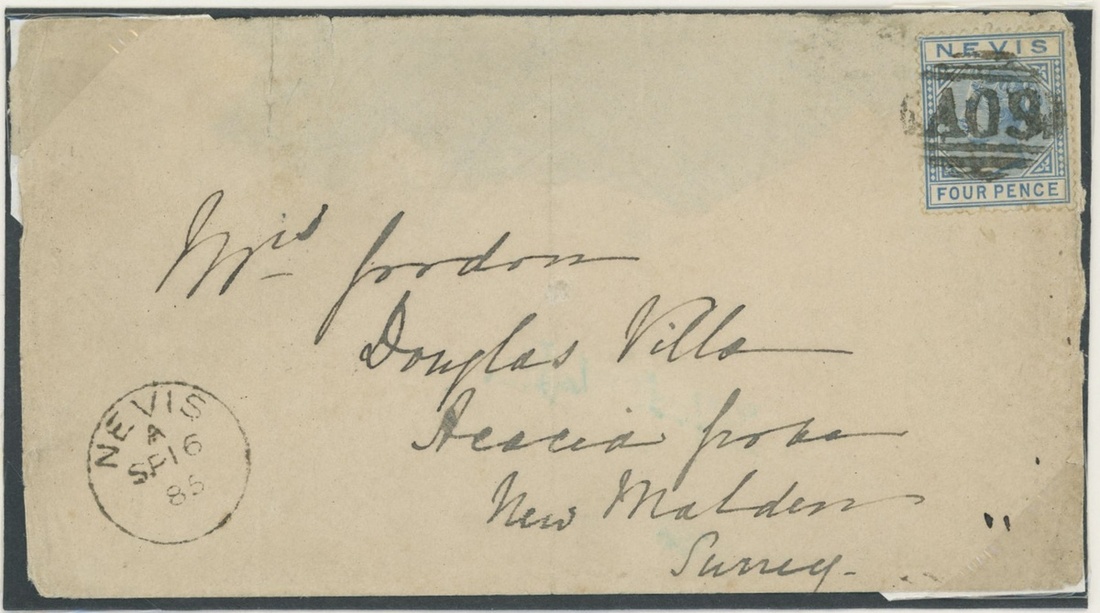 NEVIS
A09
FOUR PENCE
Mrs Gordon
Douglas Villa
Acacia Grove
New Malden
Surrey.
NEVIS
A
SP 16
85